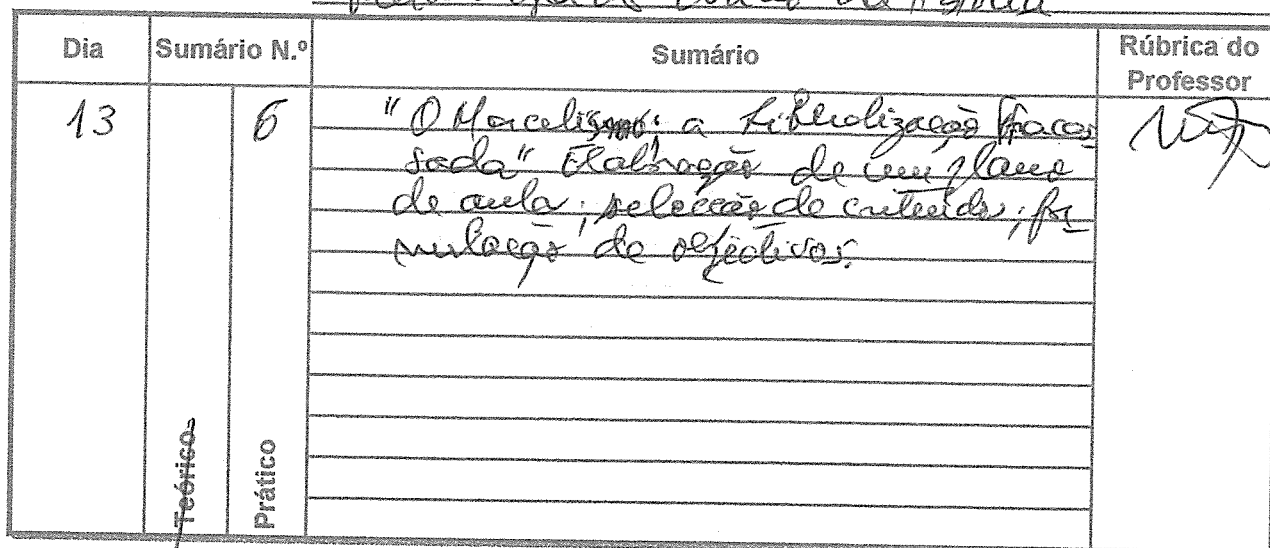 Dia Sumário N.º Sumário Rúbrica do Professor
13 6 "O Marcelismo: a Liberalização fracas
sada" Elaboração de um plano
de aula; selecção de conteúdos; for
mulação de objectivos.
Teórico
Prático